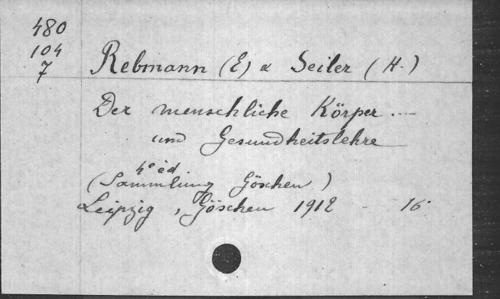 480
104
7
Rebmann (E) & Seiler (H.)
Der menschliche Körper ....
und Gesundheitslehre
4e éd
(Sammlung Göschen)
Leipzig, Göschen 1912 - 16°